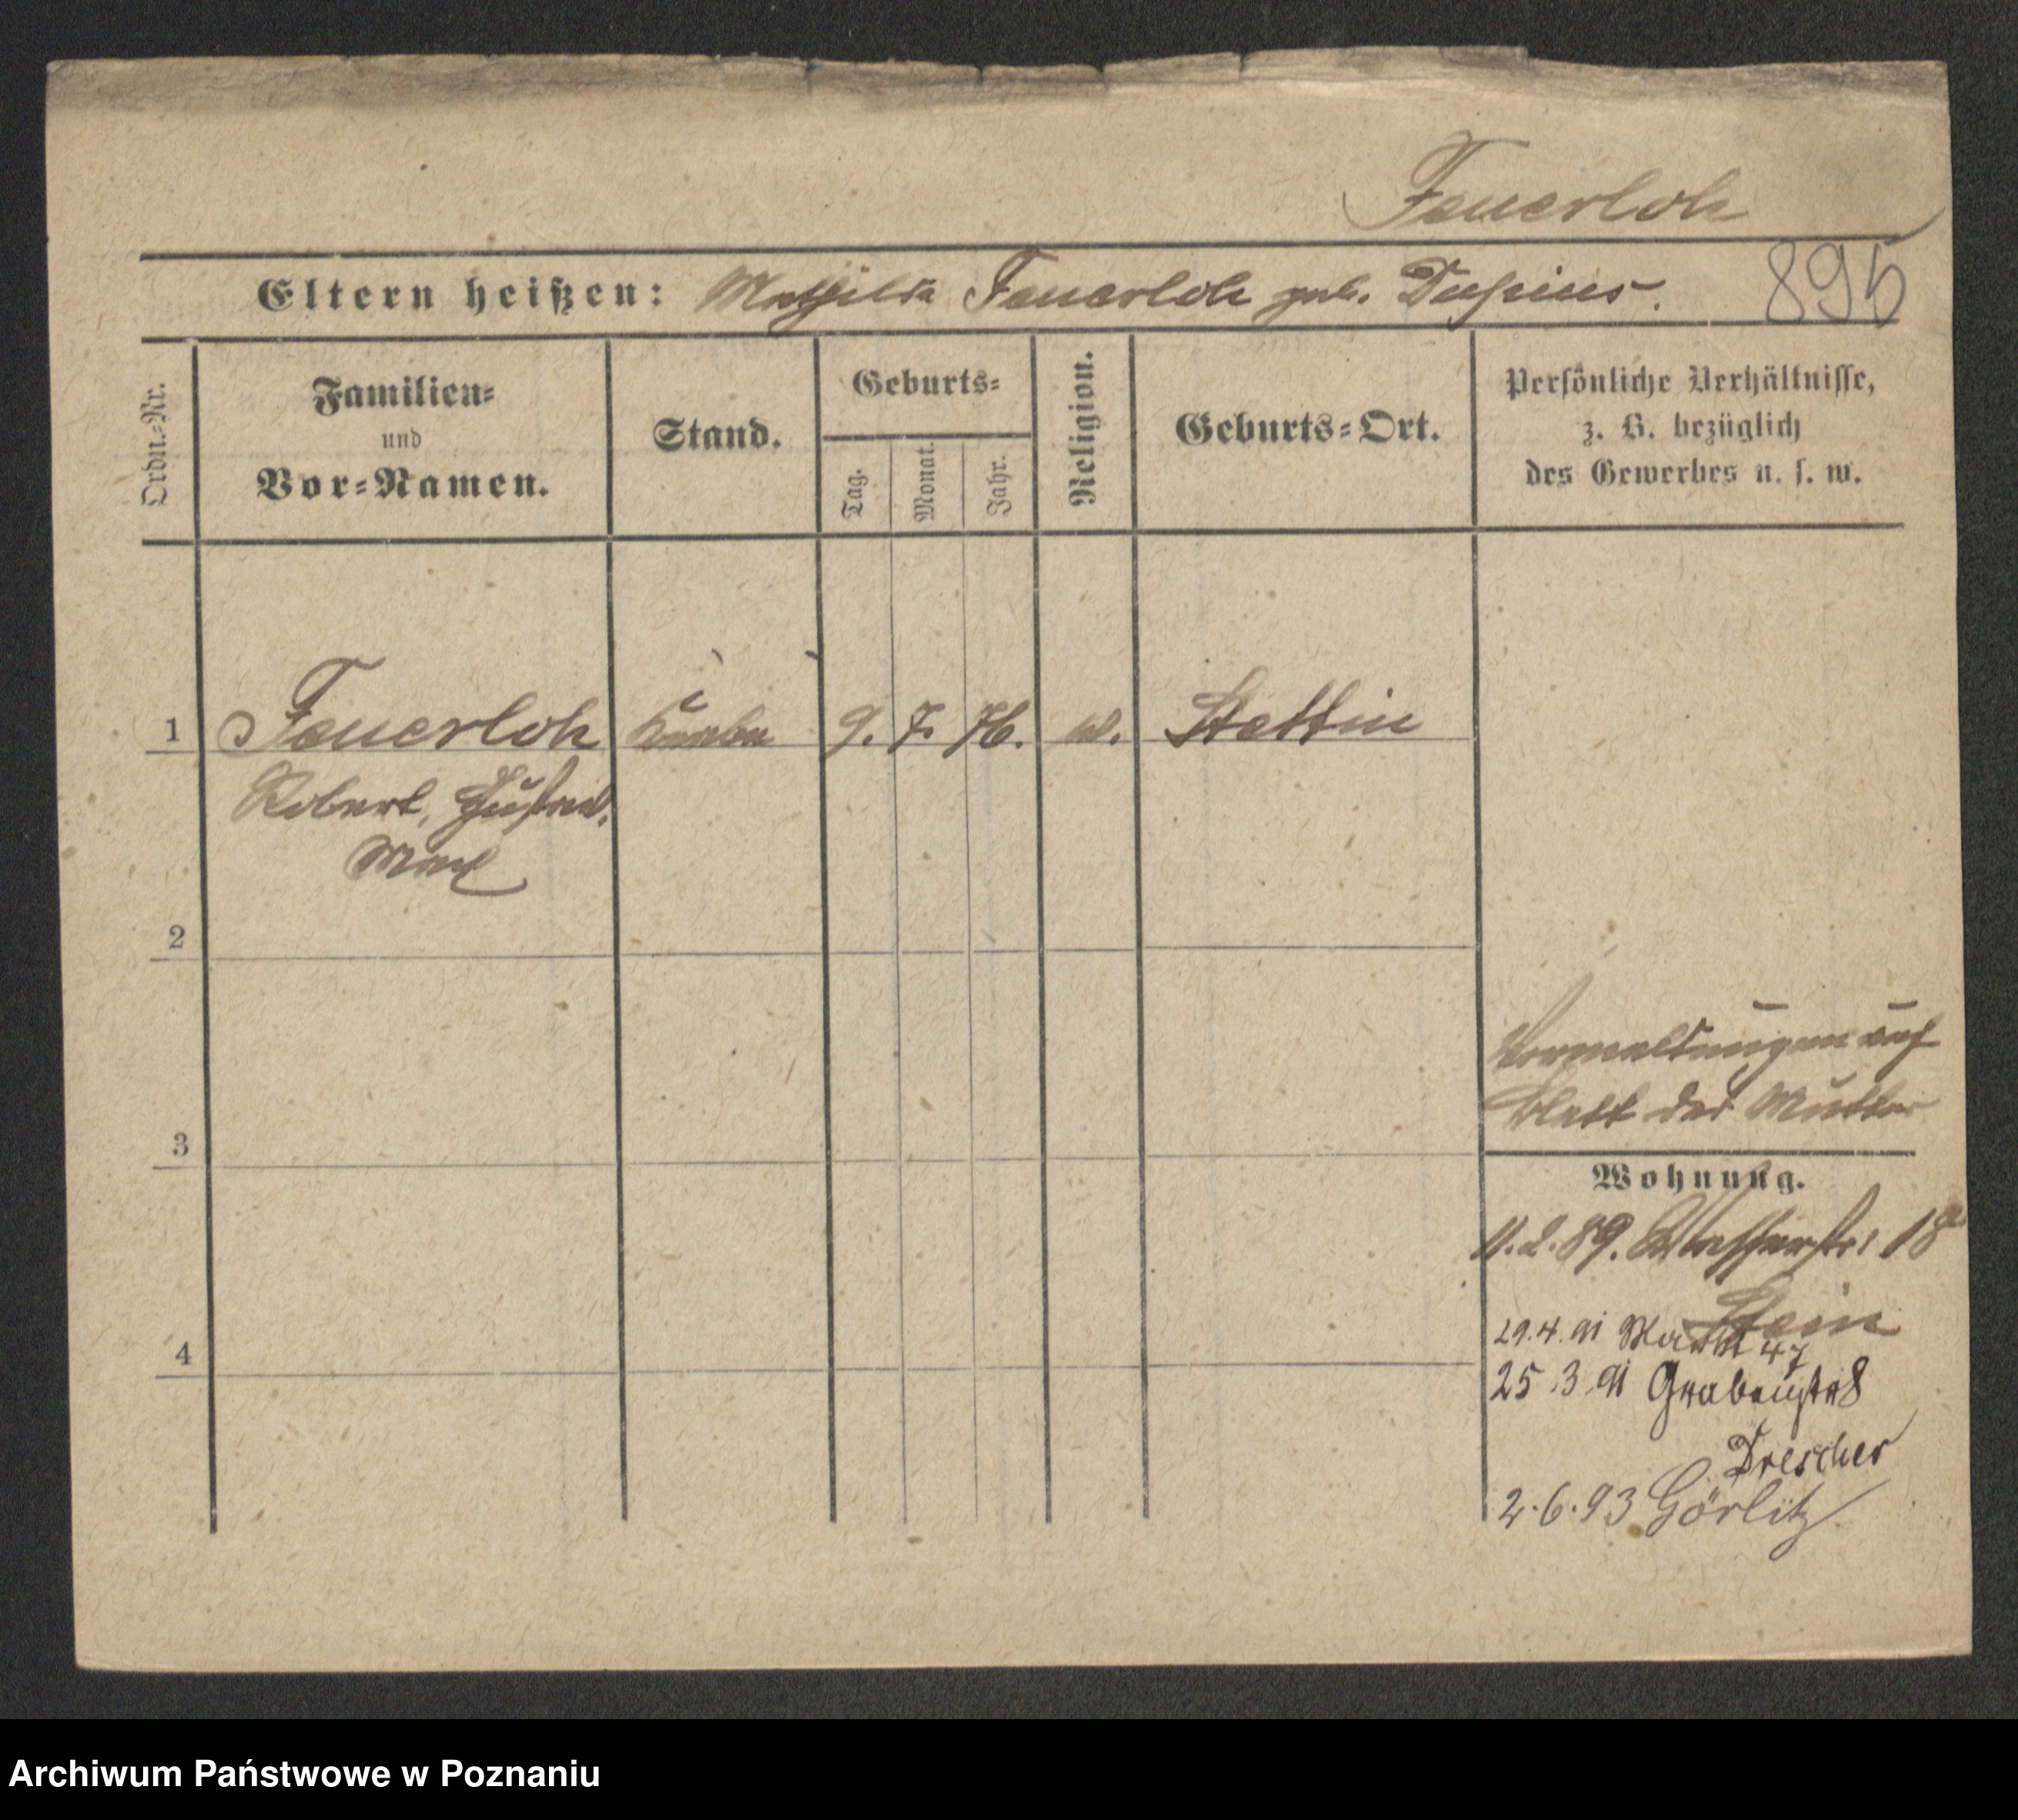 Feuerloh
Eltern heißen: Mathilde Feuerloh geb. Dussius.
895
Ordn.-Nr.
Familien-
und
Vor-Namen.
Stand.
Geburts-
Tag.
Monat.
Jahr.
Religion.
Geburts-Ort.
Persönliche Verhältnisse,
z. B. bezüglich
des Gewerbes u. s. w.
1 Feuerloh Knabe 9. 7. 76. Stettin
Robert, Gustav,
Max
2
3
4
Vormeldungen auf
Blatt der Mutter
Wohnung.
11.2.89. Wasserstr. 18
Stein
29.4.91 Markt 47
25.3.91 Grabenstr 8
Drescher
2.6.93 Görlitz
Archiwum Państwowe w Poznaniu